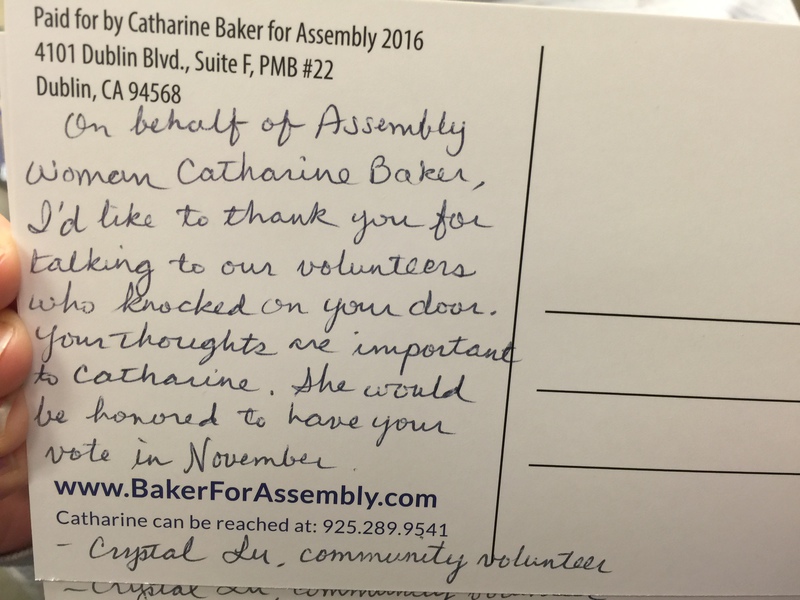 Paid for by Catharine Baker for Assembly 2016
4101 Dublin Blvd., Suite F, PMB #22
Dublin, CA 94568
On behalf of Assembly
Woman Catharine Baker,
I'd like to thank you for
talking to our volunteers
who knocked on your door.
Your thoughts are important
to Catharine. She would
be honored to have your
vote in November.
www.BakerForAssembly.com
Catharine can be reached at: 925.289.9541
- Crystal Lu, community volunteer
- Crystal Lu, community volunteer